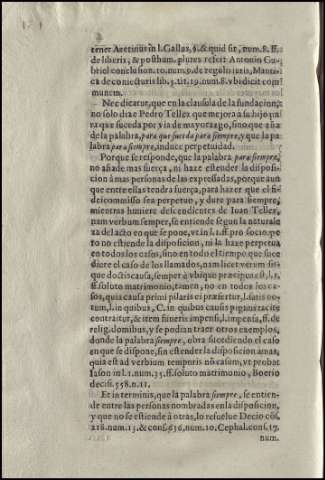 tener Aretinus in l. Gallus, §. & quid sit, num. 8. ff.
de liberis, & posthum. plures refert Antonin Ga-
briol conclusion. 10. num. 9. de regulis iuris, Manti-
ca de coniecturis lib. 3. tit. 19. num. 8. vbi dicit com
munem.
Nec dicatur, que en la clausula de la fundacion,
no solo dize Pedro Tellez que mejora a su hijo pa
ra que suceda por via de mayorazgo, sino que aña
de la palabra, para que suceda para siempre, y que la pa
labra para siempre, induce perpetuidad.
Porque se responde, que la palabra para siempre,
no añade mas fuerça, ni haze estender la disposi-
cion à mas personas de las expressadas, porque aun
que entre ellas tendra fuerça, para hazer que el fi-
deicommisso sea perpetuo, y dure para siempre,
mientras huuiere descendientes de Iuan Tellez,
nam verbum semper, se entiende segun la naturale
za del acto en que se pone, vt in l. 1. ff. pro socio. pe
ro no estiende la disposicion, ni la haze perpetua
en todos los casos, sino en todo el tiempo que suce
diere el caso de los llamados, nam licet verum sit
que doctis causa, semper & vbique præcipua est, l. 1.
ff. soluto matrimonio, tamen, no en todos los ca-
sos, quia causa primi pilaris ei præfertur, l. satis no-
tum, l. in quibus, C. in quibus causis pignus tacite
contraitur, & item funeris impensa, l. impensa, ff. de
relig. domibus, y se podian traer otros exemplos,
donde la palabra siempre, obra sucediendo el caso
en que se dispone, sin estender la disposicion a mas,
quia est ad verbium temporis nõ casum, vt probat
Iason in l. 1. num. 35. ff. soluto matrimonio, Boerio
decis. 558. n. 11.
Et in terminis, que la palabra siempre, se entien-
de entre las personas nombradas en la disposicion,
y que no se estiende à otras, lo resuelue Decio cõs.
218. num. 13. & cons. 636. num. 10. Cephal. cons. 17.
num.